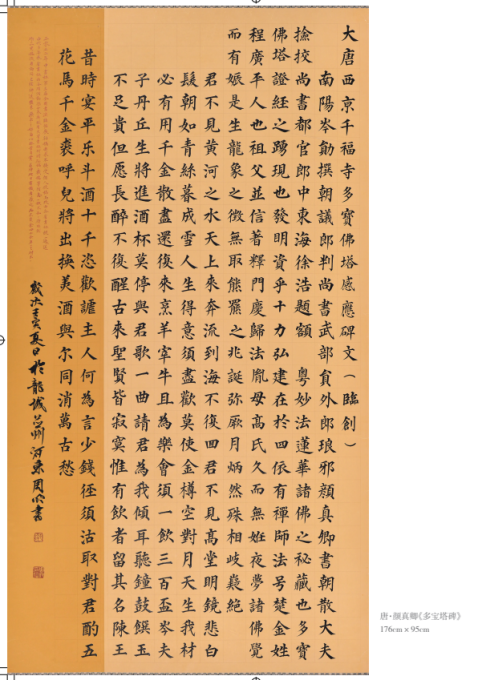 大唐西京千福寺多寳佛塔感應碑文（臨創）
南陽岑勛撰朝議郎判尚書武部貟外郎琅邪顏真卿書朝散大夫
撿挍尚書都官郎中東海徐浩題額 粤妙法蓮華諸佛之秘藏也多寳
佛塔證經之踴現也發明資乎十力弘建在於四依有禪師法号楚金姓
程廣平人也祖父並信著釋門慶歸法胤母高氏久而無姙夜夢諸佛覺
而有娠是生龍象之徵無取熊羆之兆誕弥厥月炳然殊相岐嶷絕
君不見黄河之水天上來奔流到海不復回君不見高堂明鏡悲白
髮朝如青絲暮成雪人生得意須盡歡莫使金樽空對月天生我材
必有用千金散盡還復來烹羊宰牛且為樂會須一飲三百盃岑夫
子丹丘生將進酒杯莫停與君歌一曲請君為我傾耳聽鐘鼓饌玉
不足貴但愿長醉不復醒古來聖賢皆寂寞惟有飲者留其名陳王
昔時宴平乐斗酒十千恣歡謔主人何為言少錢徑須沽取對君酌五
花馬千金裘呼兒將出換美酒與尔同消萬古愁
歲次壬寅夏日於龍城 河東周 書
唐·颜真卿《多宝塔碑》
176cm × 95cm